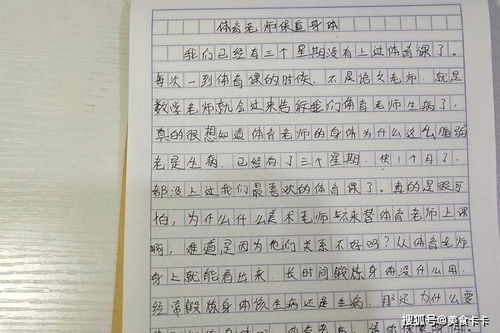 体育老师保重身体
我们已经有三个星期没有上过体育课了。
每次一到体育课的时候，不是语文老师，就是
数学老师就会过来告诉我们体育老师生病了，
真的很想知道体育老师的身体为什么这么脆弱
老是生病，已经有了三个星期，快1个月了，
都没上过我们最喜欢的体育课了。真的是
怕，为什么什么美术老师 来替体育老师上课
啊，难道是因为他们关系不好吗？从体育老师
身上就能看出来，长时间锻炼身体没什么用，
经常锻炼身体该生病还是生病，那还为什么要
搜狐号@美食卡卡